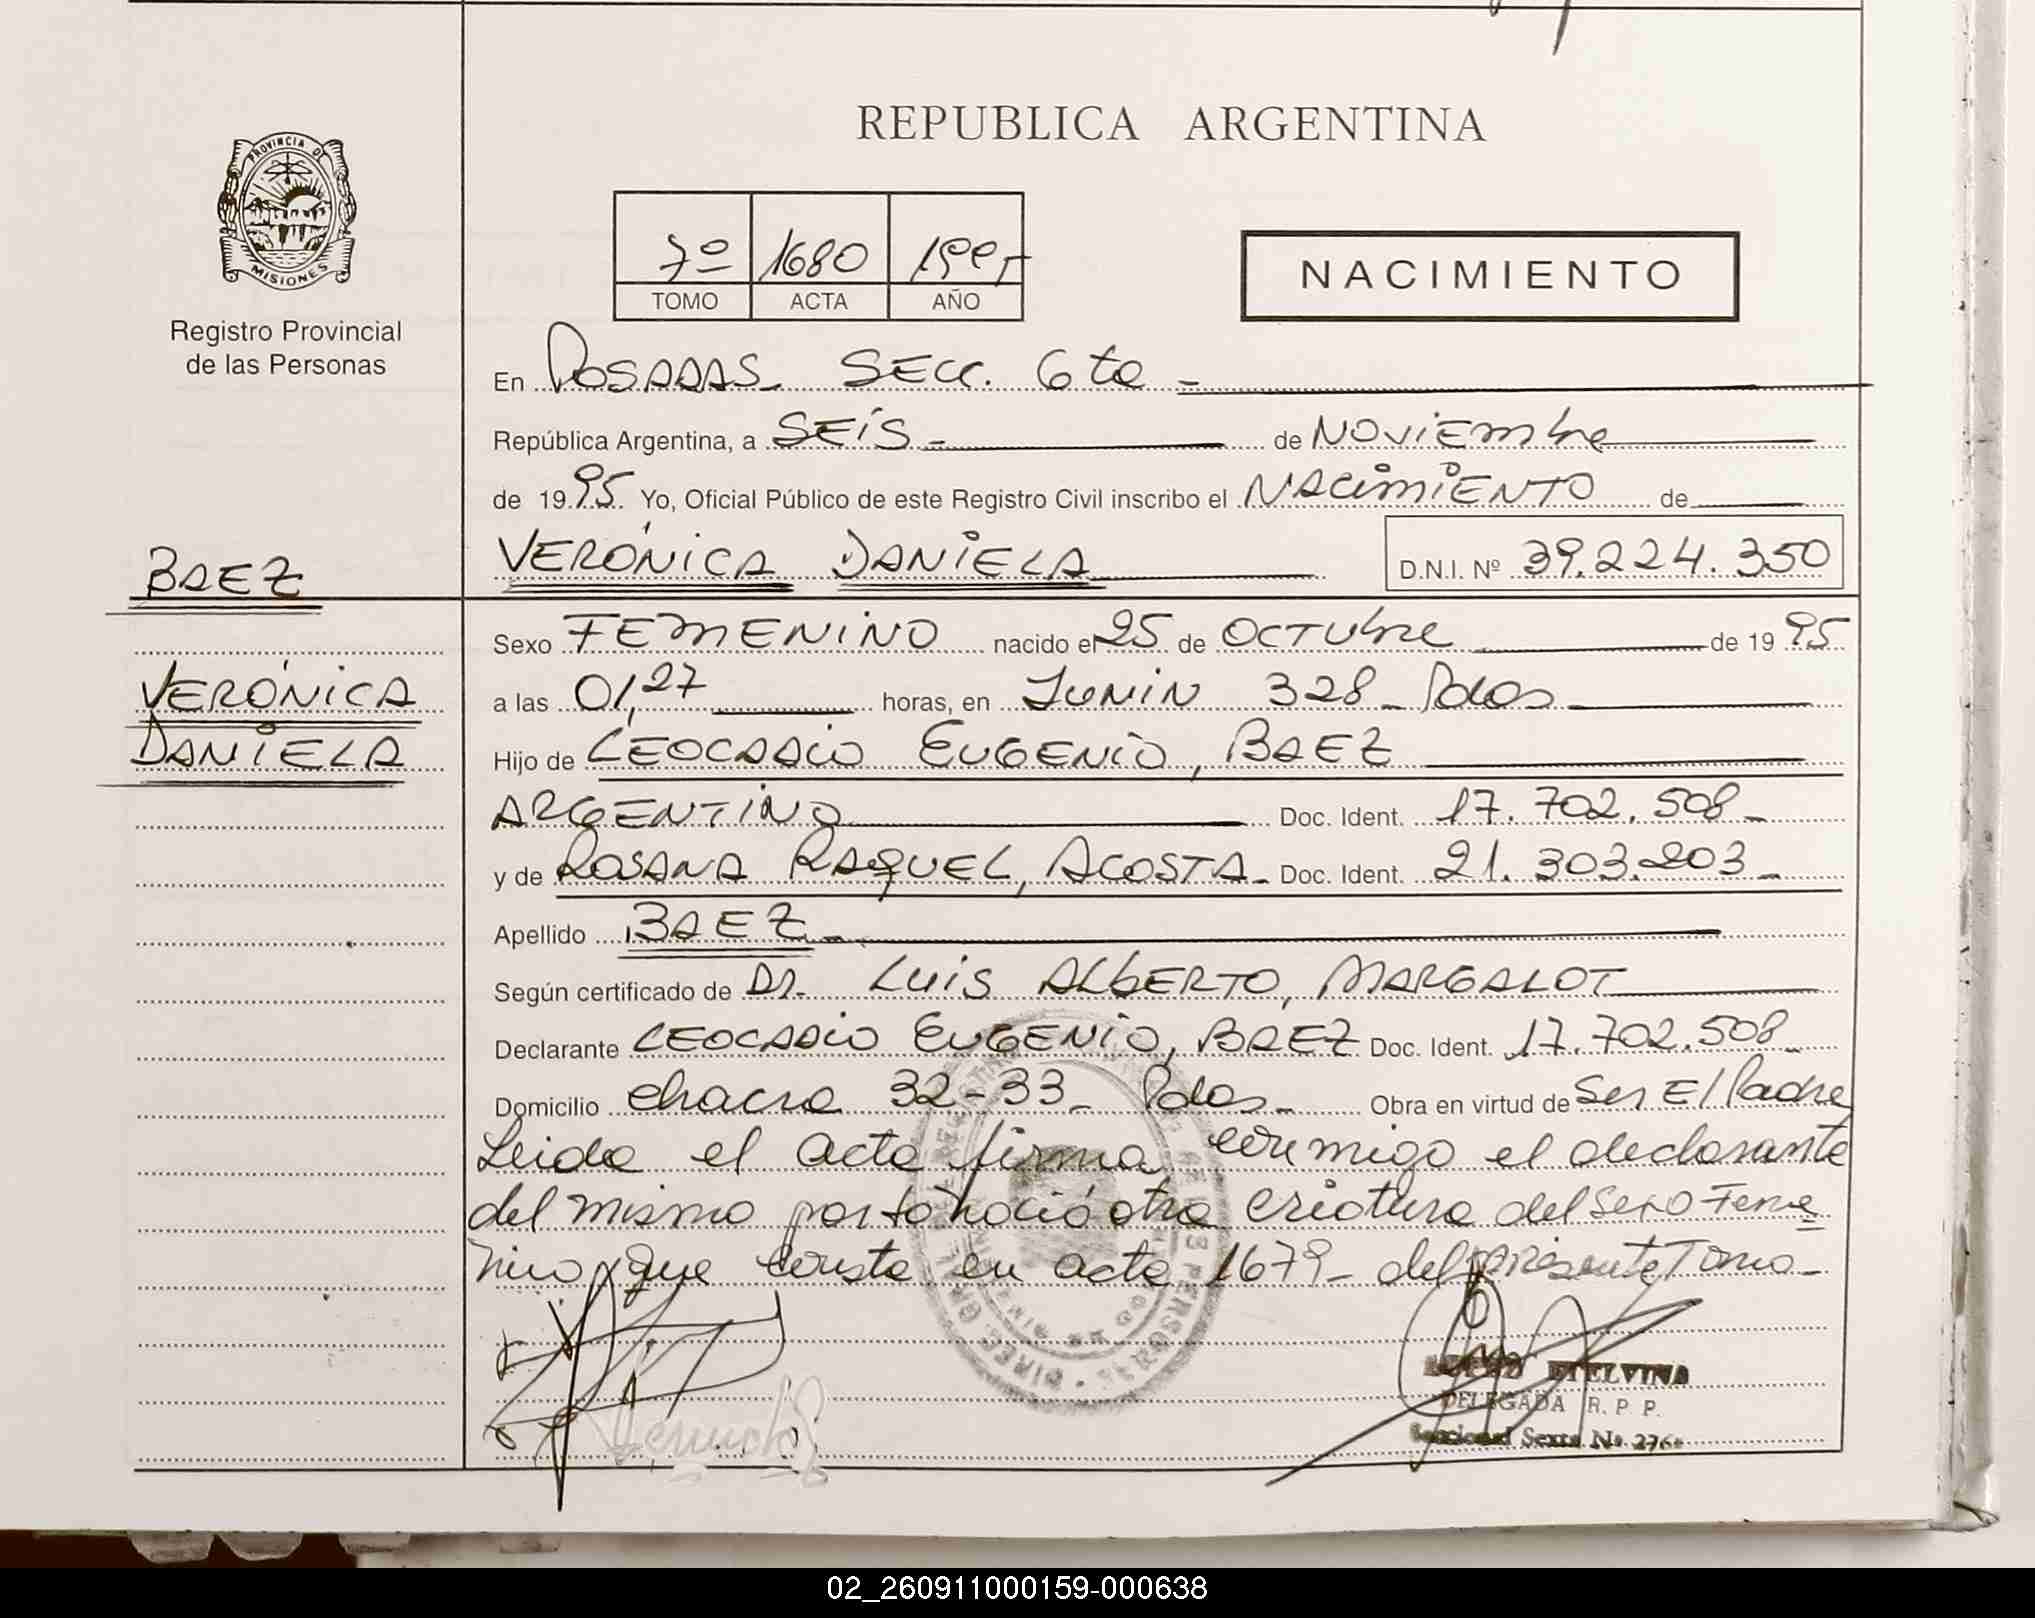 REPUBLICA ARGENTINA
PROVINCIA DE
MISIONES
Registro Provincial
de las Personas
7º 1680 1995
TOMO ACTA AÑO
NACIMIENTO
En POSADAS SECC. 6ta
República Argentina, a SEÍS de NOVIEMbre
de 1995 Yo, Oficial Público de este Registro Civil inscribo el NACIMIENTO de
BAEZ
VERÓNICA DANIELA D.N.I. Nº 39.224.350
Sexo FEMENINO nacido el 25 de OCTUbre de 1995
VERÓNICA
a las 01,27 horas, en JUNIN 328 - Pdas
DANIELA
Hijo de LEOCADIO EUGENIO, BAEZ
ARGENTINO Doc. Ident. 17.702.508
y de ROSANA RAQUEL, ACOSTA - Doc. Ident. 21.303.203
Apellido BAEZ
Según certificado de Dr. LUIS ALBERTO, MARGALOT
Declarante LEOCADIO EUGENIO, BAEZ Doc. Ident. 17.702.508
Domicilio chacra 32-33 - Pdas - Obra en virtud de Ser El Padre
Leida el acta firma conmigo el declarante
del mismo parto nació otra criatura del Sexo Feme
nino que consta en acta 1679 - del presente Tomo -
ETELVINA
DELEGADA R. P. P.
Seccional Sexta No. 276
02_260911000159-000638